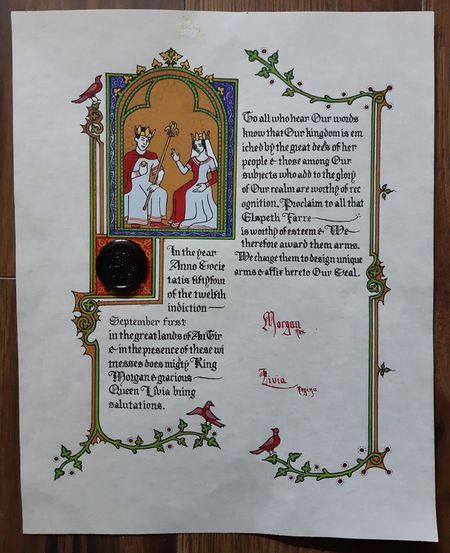 In the year
Anno Socie
tatis fifty four
of the twelfth
indiction
September first
in the great lands of An Tir
& in the presence of these wi
tnesses does migty King
Morgan & gracious
Queen Livia bring
salutations.
To all who hear Our words
know that Our kingdom is enr
iched by the great deeds of her
people & those among Our
subjects who add to the glory
of Our realm are worthy of rec
ognition. Proclaim to all that
Elspeth Farre
is worthy of esteem & We
therefore award them arms.
We charge them to design unique
arms & affix hereto Our Seal.
Morgan
Rex
Livia
Regina